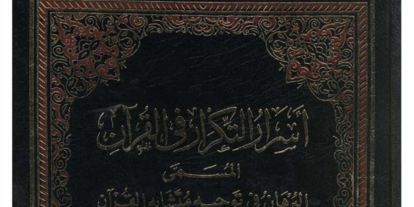 أسرار التكرار في القرآن
المسمى
البرهان في توجيه متشابه القرآن